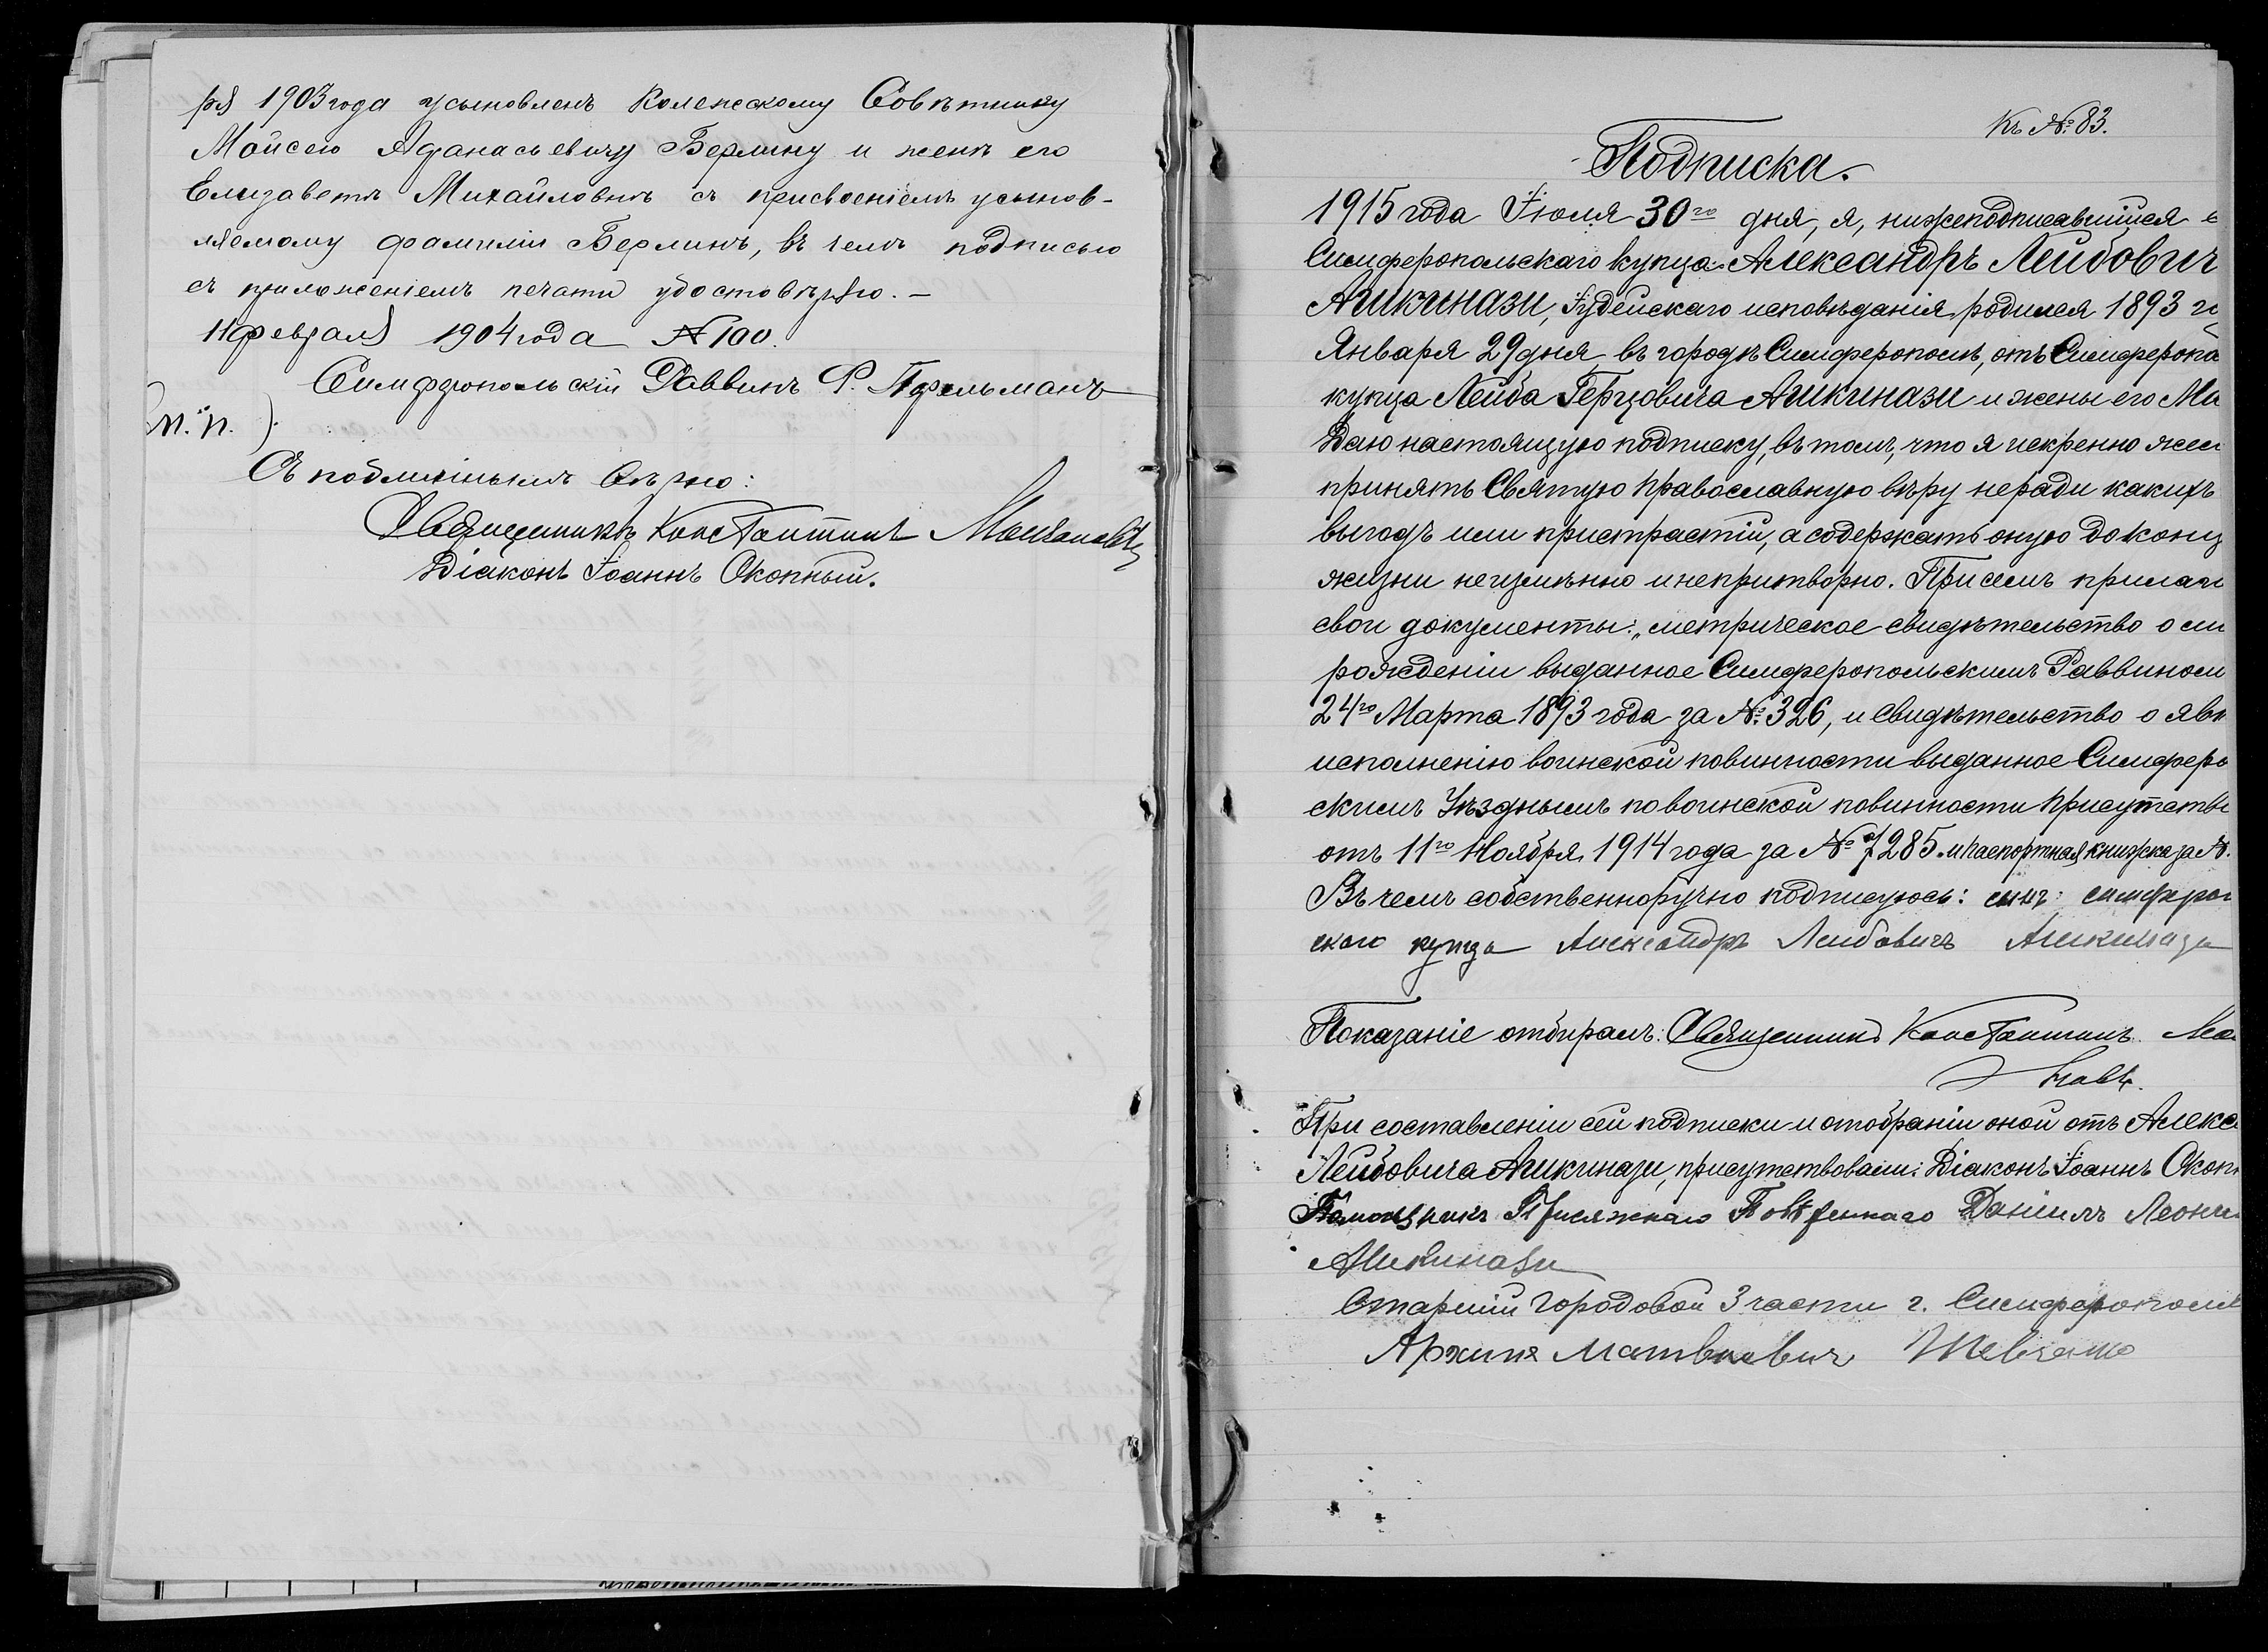 ря 1903 года усыновленъ Колежскому Совѣтнику
Мойсею Афанасьевичу Берлину и женѣ его
Елизаветѣ Михайловнѣ съ присвоеніемъ усынов-
ляемому фамиліи Берлинъ, въ чемъ подписью
съ приложеніемъ печати удостовѣряю. –
11 февраля 1904 года № 100.
Симферопольскій Раввинъ
(м. п.)
Съ подлиннымъ вѣрно:
Священникъ Константинъ
Діаконъ Іоаннъ Окопный.
Къ № 83.
Подписка.
1915 года Іюля 30го дня, я, нижеподписавшійся с
Симферопольскаго купца Александръ Лейбович
Ашкинази, Іудейскаго исповѣданія, родился 1893 го
Января 29 дня въ городѣ Симферополѣ, отъ Симферопо
купца Лейба Герцовича Ашкинази и жены его Ми
Даю настоящую подписку, въ томъ, что я искренно жел
принять Святую Православную вѣру не ради какихъ
выгодъ или пристрастій, а содержать оную до конц
жизни неизмѣнно и непритворно. При семъ прилаг
свои документы: „метрическое свидѣтельство о мо
рожденіи выданное Симферопольскимъ Раввином
24го Марта 1893 года за № 326, и свидѣтельство о явк
исполненію воинской повинности выданное Симферо
скимъ Уѣзднымъ по воинской повинности Присутстві
отъ 11го Ноября 1914 года за № 7285. и паспортная книжка за №.
Въ чемъ собственноручно подписуюсь: сынъ симферо
скаго купца Александръ Лейбовичъ Ашкинази
Показаніе отбиралъ: Священникъ Константинъ
новъ.
При составленіи сей подписки и отобраніи оной отъ Алекса
Лейбовича Ашкинази, присутствовали: Діаконъ Іоаннъ Окопн
Помощникъ Присяжнаго Повѣреннаго Даніилъ Леонть
Ашкинази
Старшій Городовой 3 части г. Симферополя
Архипъ Матвѣевичъ Шевченко